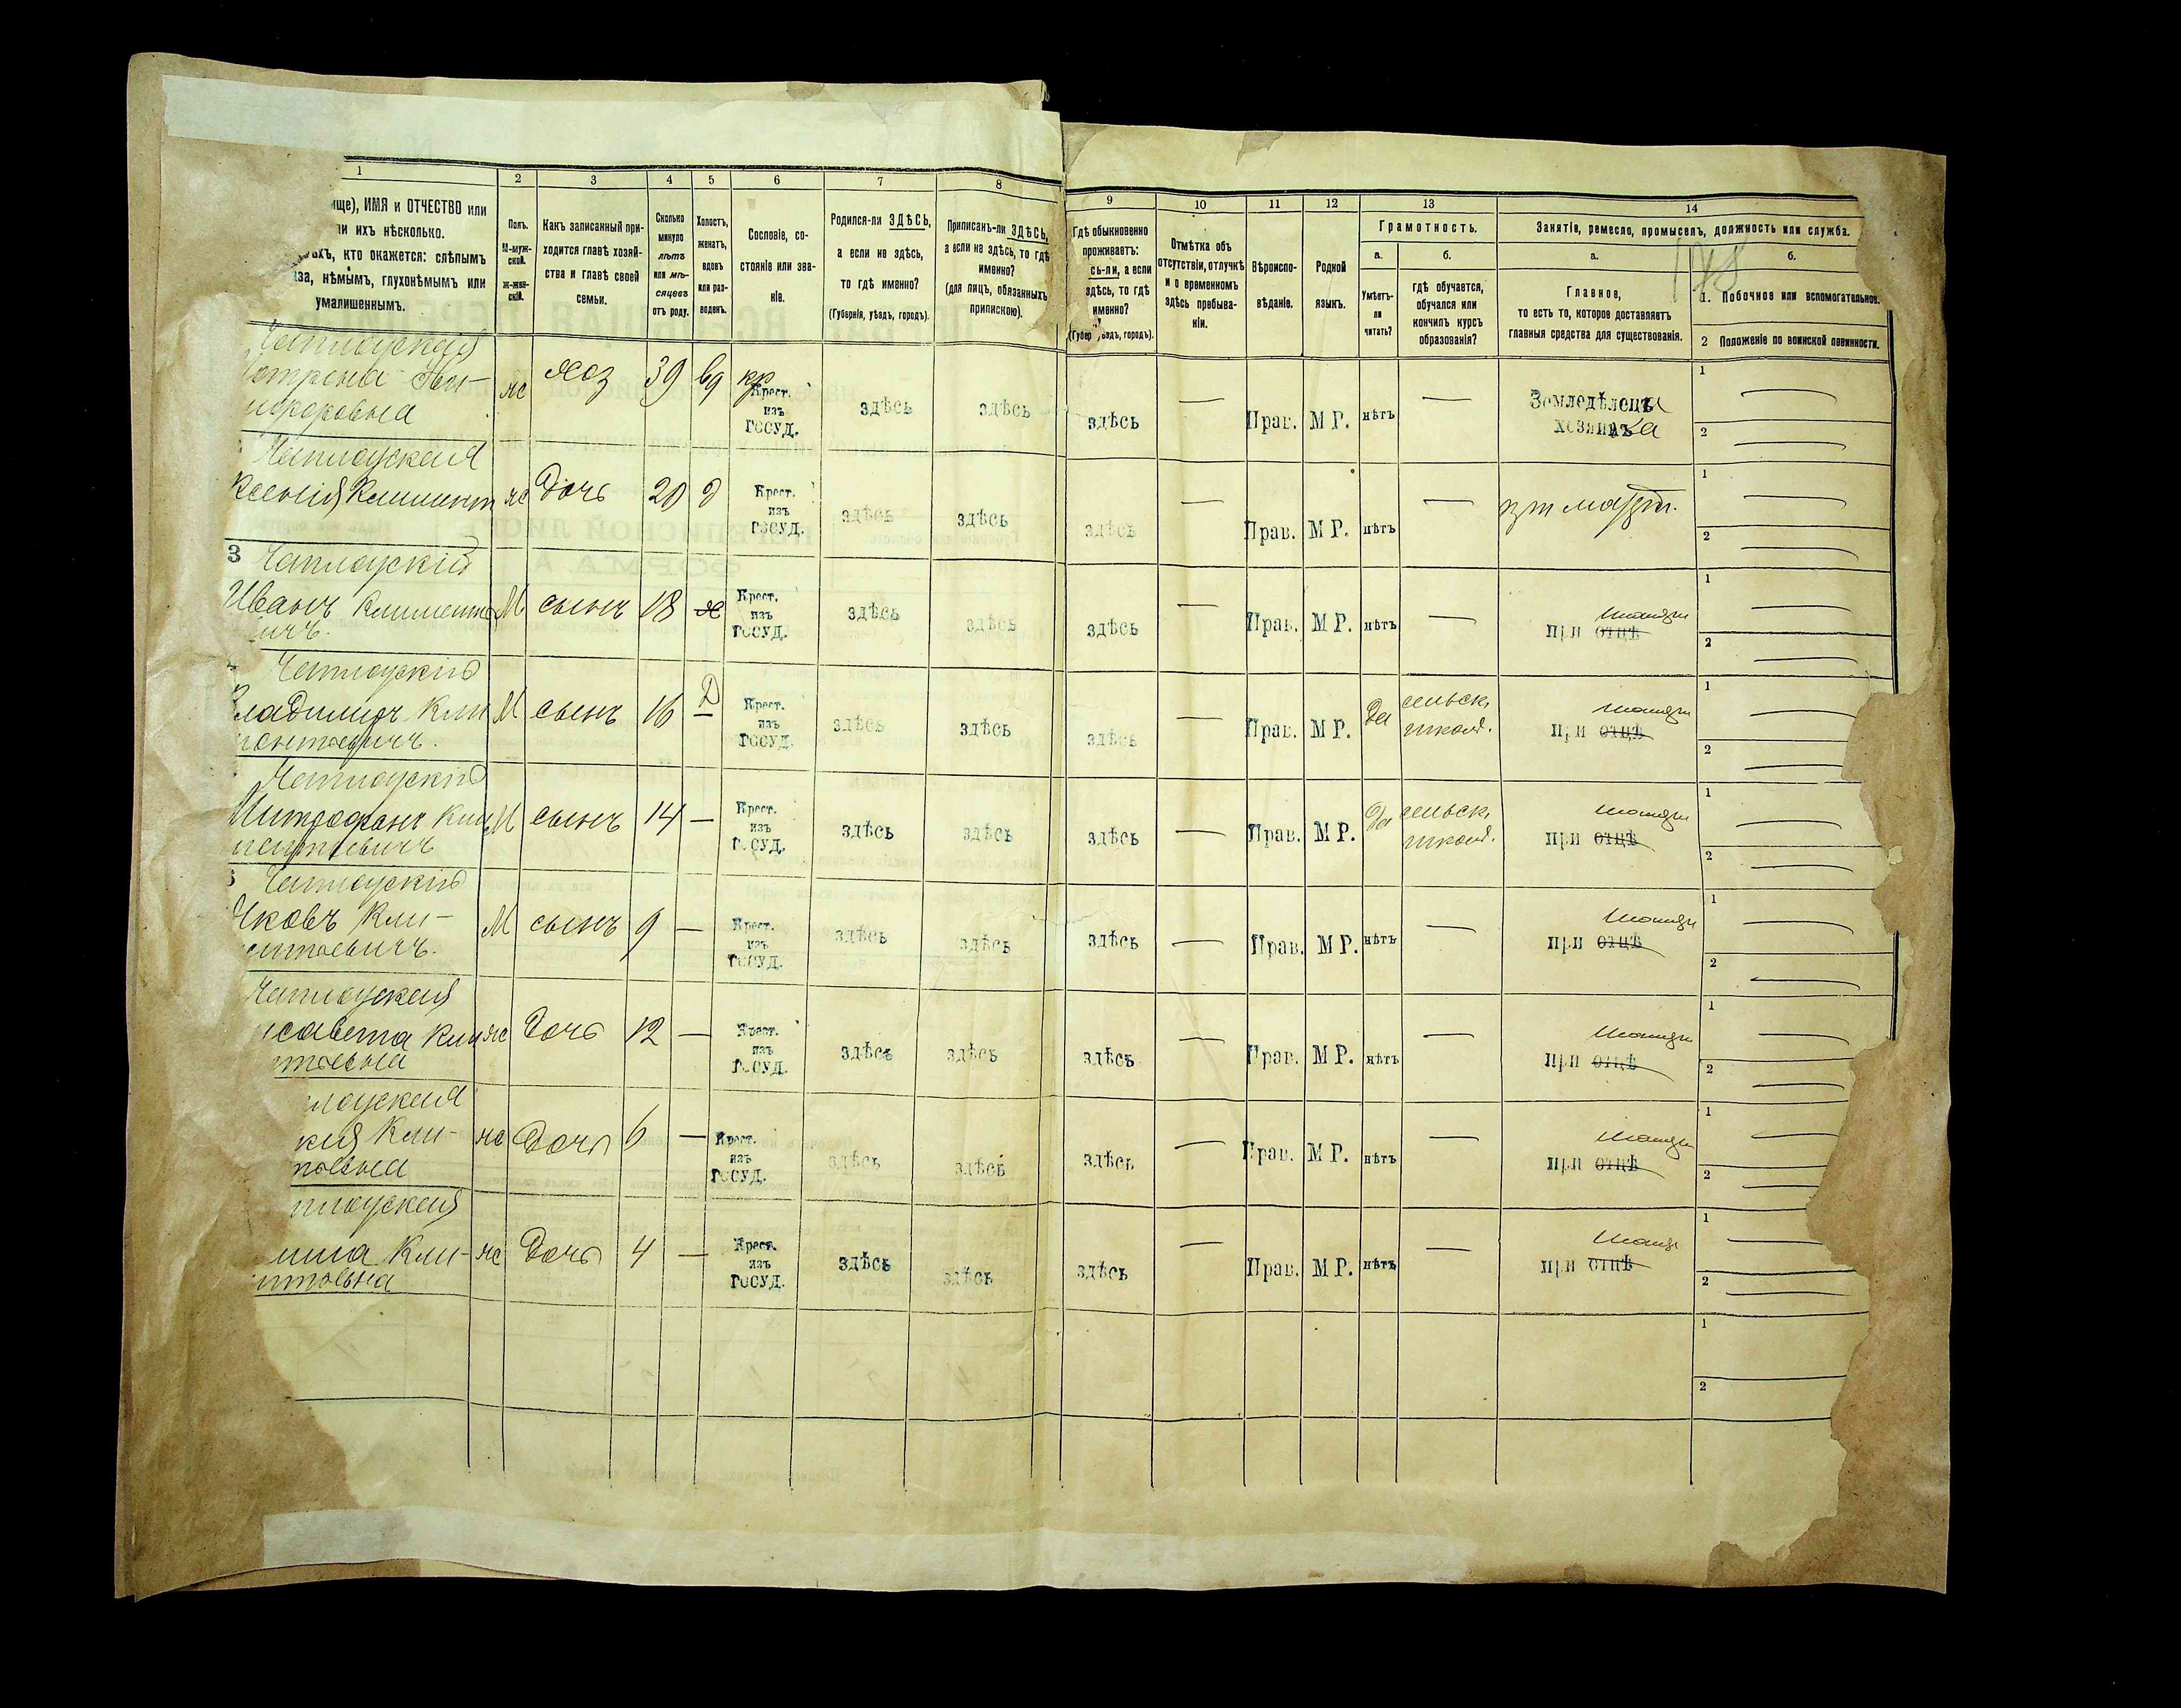 1 2 3 4 5 6 7 8 9 10 11 12 13 14
ище), ИМЯ и ОТЧЕСТВО или
ли ихъ нѣсколько.
кто окажется: слѣпымъ
нѣмымъ, глухонѣмымъ или
умалишеннымъ.
Полъ.
М-муж-
ской.
ж-жен-
скій.
Какъ записанный при-
ходится главѣ хозяй-
ства и главѣ своей
семьи.
Сколько
минуло
лѣтъ
или мѣ-
сяцевъ
отъ роду.
Холостъ,
женатъ,
вдовъ
или раз-
веденъ.
Сословіе, со-
стояніе или зва-
ніе.
Родился-ли ЗДѢСЬ,
а если не здѣсь,
то гдѣ именно?
(Губернія, уѣздъ, городъ).
Приписанъ-ли ЗДѢСЬ,
а если не здѣсь, то гдѣ
именно?
(для лицъ, обязанныхъ
припискою).
Гдѣ обыкновенно
проживаетъ:
сь-ли, а если
здѣсь, то гдѣ
именно?
(Губер ѣздъ, городъ).
Отмѣтка объ
отсутствіи, отлучкѣ
и о временномъ
здѣсь пребыва-
ніи.
Вѣроиспо-
вѣданіе.
Родной
языкъ.
Грамотность.
а.
Умѣетъ-
ли
читать?
б.
гдѣ обучается,
обучался или
кончилъ курсъ
образованія?
Занятіе, ремесло, промыселъ, должность или служба.
а.
Главное,
то есть то, которое доставляетъ
главныя средства для существованія.
б.
1. Побочное или вспомогательное.
2 Положеніе по воинской повинности.
Чаплоуская
никифоровна
ж хоз 39 вд кр
Крест.
изъ
ГОСУД.
здѣсь здѣсь здѣсь — Прав. М Р. нѣтъ —
Земледѣлецъ
хозяинъ ка
1 —
2 —
Чаплоуская
Ксенія Климент
ж дочь 20 д
Крест.
изъ
ГОСУД.
здѣсь здѣсь здѣсь — Прав. М Р. нѣтъ —
1 —
2 —
3 Чаплоускій
Иванъ Климентье
ичъ.
М сынъ 18 х
Крест.
изъ
ГОСУД.
здѣсь здѣсь здѣсь — Прав. М Р. нѣтъ —
матери
при отцѣ
1 —
2 —
Чаплоускій
Владиміръ Кли
ментьевичъ.
М сынъ 16 Д —
Крест.
изъ
ГОСУД.
здѣсь здѣсь здѣсь — Прав. М Р. да
сельск.
школ.
матери
при отцѣ
1 —
2 —
Чаплоускій
Митрофанъ Кли
ментьевичъ
М сынъ 14 —
Крест.
изъ
ГОСУД.
здѣсь здѣсь здѣсь — Прав. М Р. да
сельск.
школ.
матери
при отцѣ
1 —
2 —
Чаплоускій
Яковъ Кли-
ентьевичъ.
М сынъ 9 —
Крест.
изъ
ГОСУД.
здѣсь здѣсь здѣсь — Прав. М Р. нѣтъ —
матери
при отцѣ
1 —
2 —
Чаплоуская
исавета Кли
нтьевна
ж дочь 12 —
Крест.
изъ
ГОСУД.
здѣсь здѣсь здѣсь — Прав. М Р. нѣтъ —
матери
при отцѣ
1 —
2 —
лоуская
кія Кли-
нтьевна
ж дочь 6 —
Крест.
изъ
ГОСУД.
здѣсь здѣсь здѣсь — Прав. М Р. нѣтъ —
матери
при отцѣ
1 —
2 —
плоуская
Кли-
нтьевна
ж дочь 4 —
Крест.
изъ
ГОСУД.
здѣсь здѣсь здѣсь — Прав. М Р. нѣтъ —
матери
при отцѣ
1 —
2 —
1
2